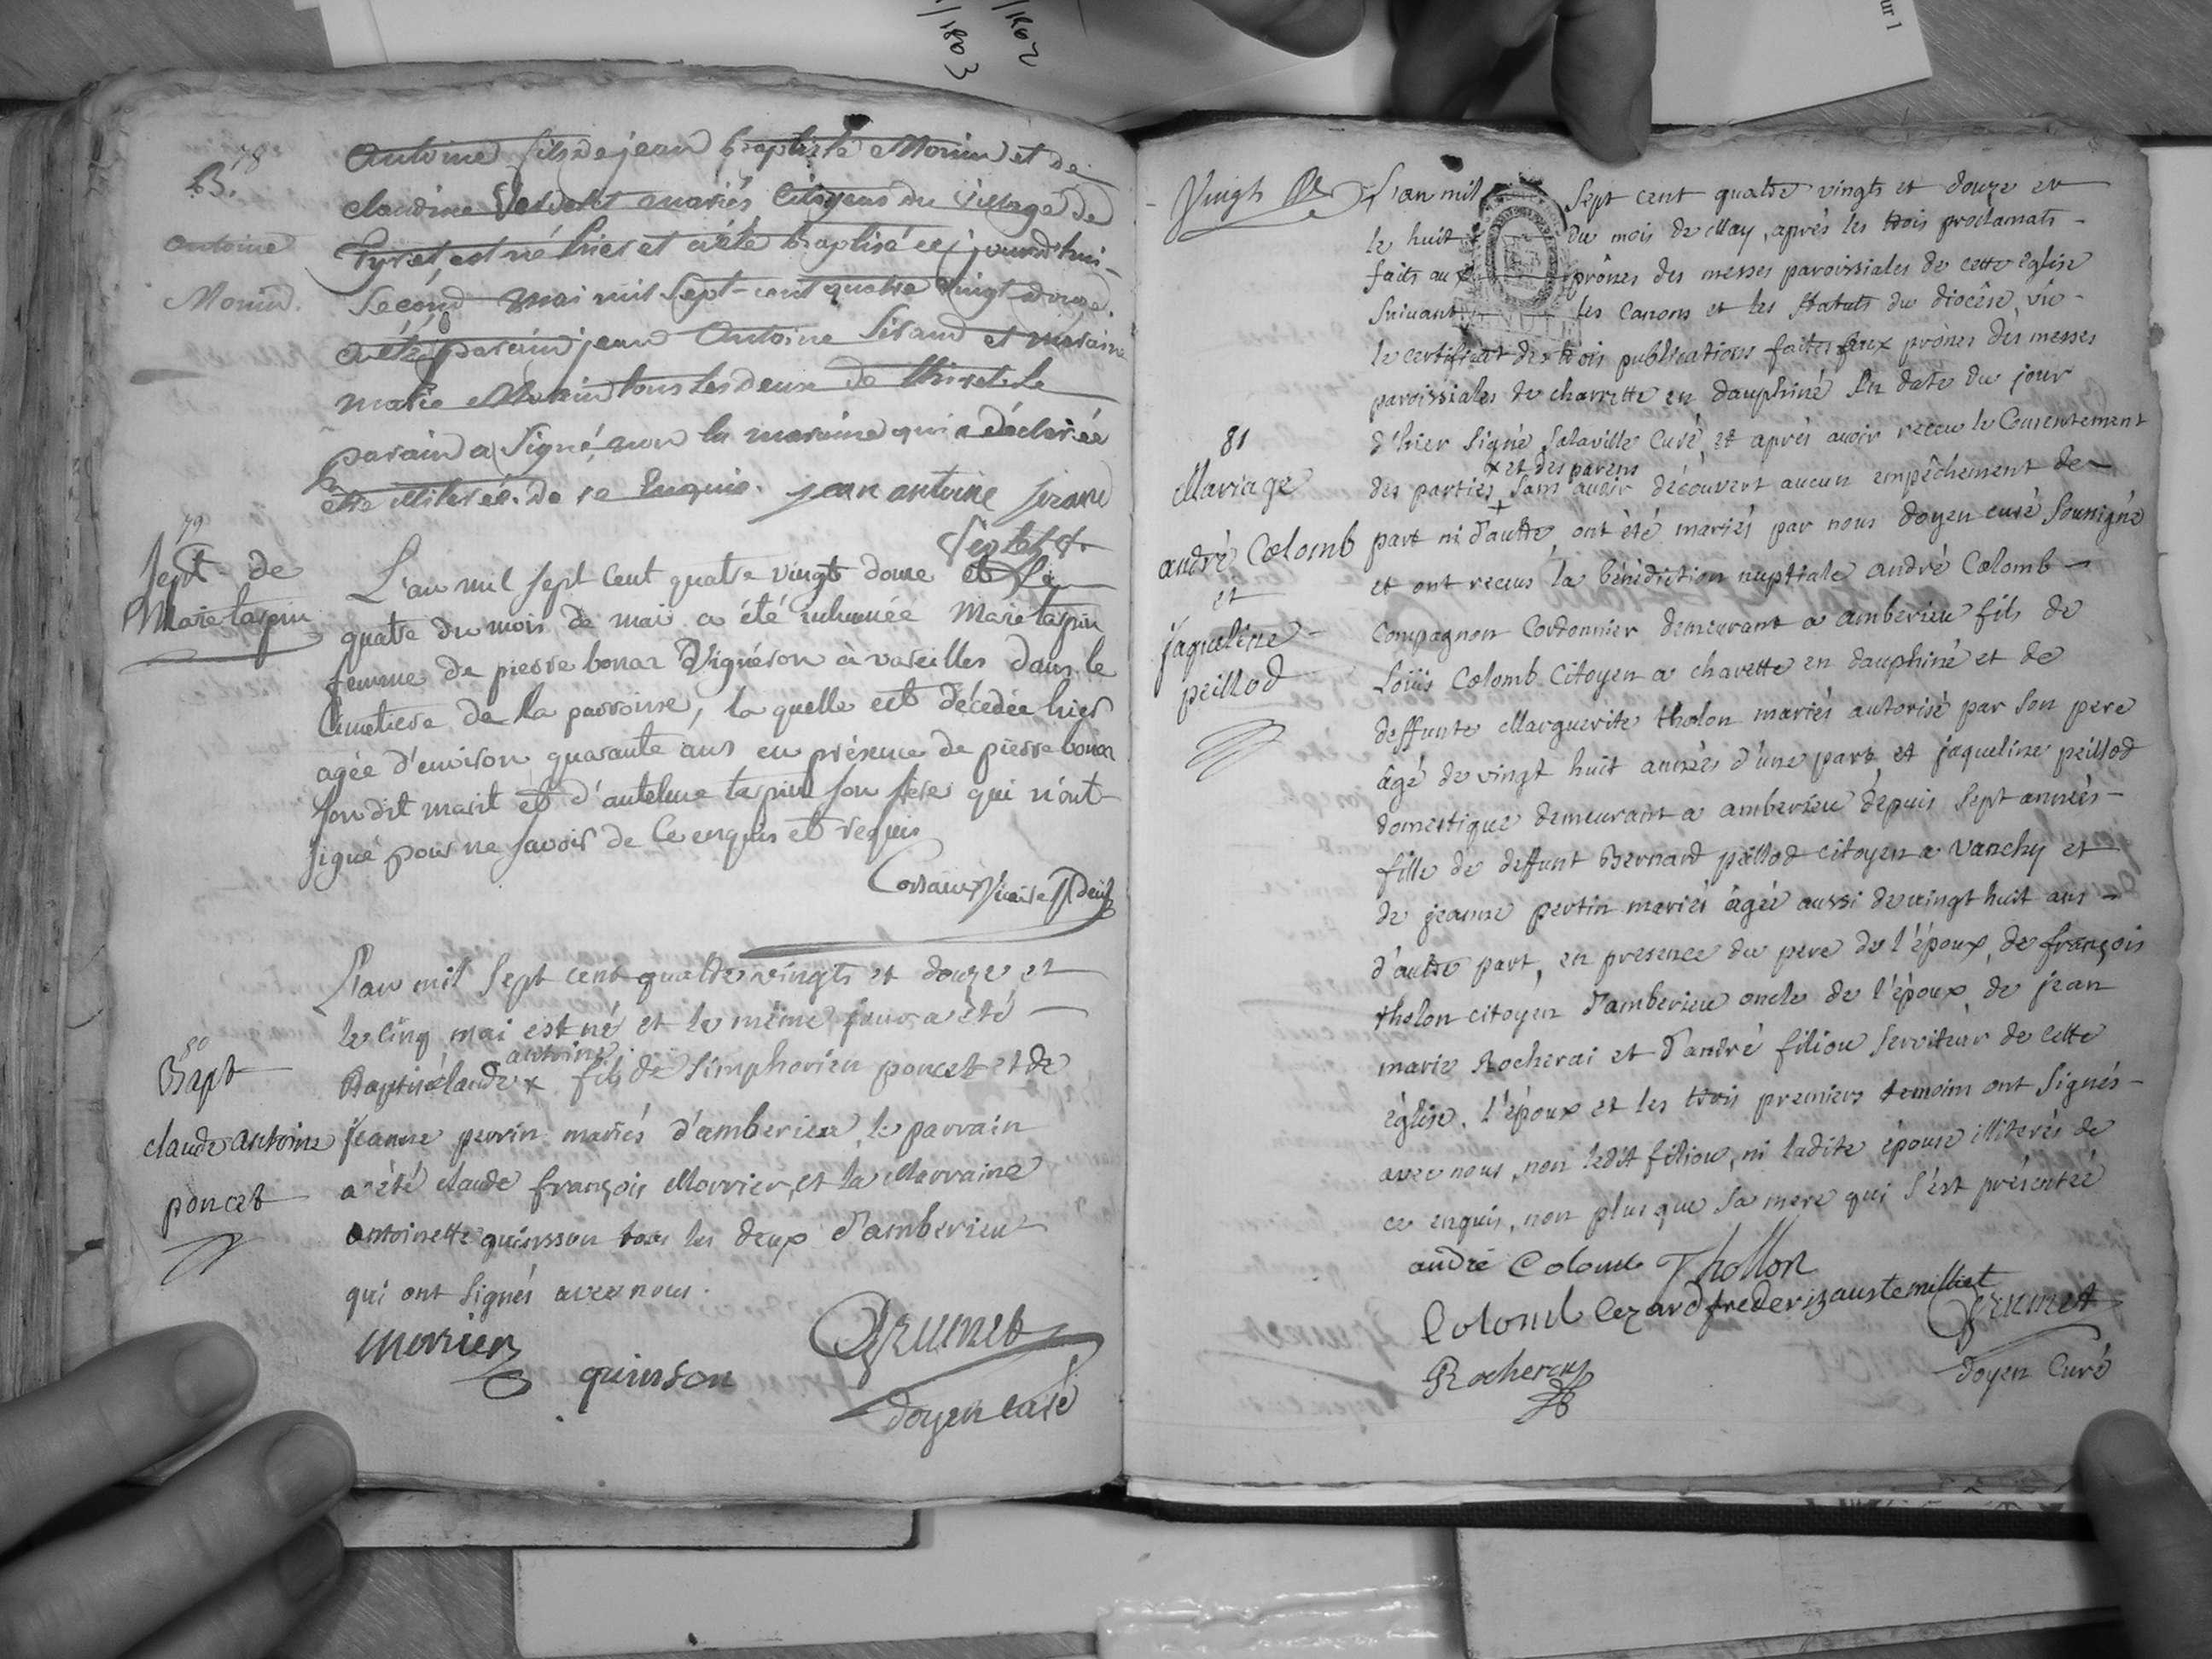 1803
1802
ur 1
78
B.
Antoine
Monin.
Antoine fils de jean baptiste Monin et de
claudine mariés Citoyens du village de
est né hier et a été baptisé cejourd'hui
Second mai mil Sept-cent quatre vingt douze.
a été parain jean Antoine Sirand et maraine
marie Monin tous les deux de Le
parain a Signé, non la maraine qui a déclarée
etre illiterée. de ce Enquis. jean antoine sirand
79
Sept. de
Marie tarpin
L'an mil sept cent quatre vingt douze et le
quatre du mois de mai a été inhumée Marie tarpin
femme de pierre bonaz Vigneron à vareilles dans le
Cimetiere de la parroisse, la quelle est décedée hier
agée d'environ quarante ans en présence de pierre bonaz
son dit marit et d'antelme tarpin son frere qui n'ont
signé pour ne savoir de ce enquis et requis
80
Bapt
claude antoine
poncet
L'an mil Sept cent quatre vingts et douze et
le cinq mai est né et le même jour a été
antoine
Baptisé claude x fils de Simphorien poncet et de
jeanne perrin mariés d'amberieu, le parrain
a été claude françois Morrier, et la Marraine
antoinette quinsson tous les deux d'amberieu
qui ont Signés avec nous.
morier
quinson
Grumet
doyen curé
Vingt
L'an mil Sept cent quatre vingts et douze et
le huit du mois de May, après les trois proclamats
faits aux prônes des messes paroissiales de cette église
Suivant les Canons et les Statuts du diocèse, vû
le certificat des trois publications faites aux prônes des messes
paroissiales de charrette en dauphiné En date du jour
d'hier Signé Salaville Curé, et après avoir reccu le Consentement
x et des parens
des parties, Sans avoir découvert aucun empêchement de
part ni d'autre, ont été mariés par nous doyen curé Soussigné
et ont reccus la bénédiction nuptiale andré Colomb
Compagnon Cordonnier demeurant a amberieu fils de
Loüis Colomb Citoyen a charette en dauphiné et de
deffunte Marguerite tholon mariés autorisé par Son pere
âgé de vingt huit années d'une part, et jaqueline peillod
domestique demeurant a amberieu depuis Sept années
fille de deffunt Bernard peillod citoyen a Vanchy et
de jeanne pertin mariés âgée aussi de vingt huit ans
d'autre part, en presence du pere de l'époux, de françois
tholon citoyen d'amberieu oncle de l'époux, de jean
marie Rocherai et d'andré filiou Serviteur de cette
église. l'époux et les trois premiers temoins ont Signés
avec nous, non ledit filiou, ni ladite épouse illiterés de
ce enquis, non plus que Sa mere qui S'est présentée
81
Mariage
andré Colomb
et
jaqueline
peillod
andré Colomb Thollon
Colomb
Rocheray
Grumet
doyen Curé